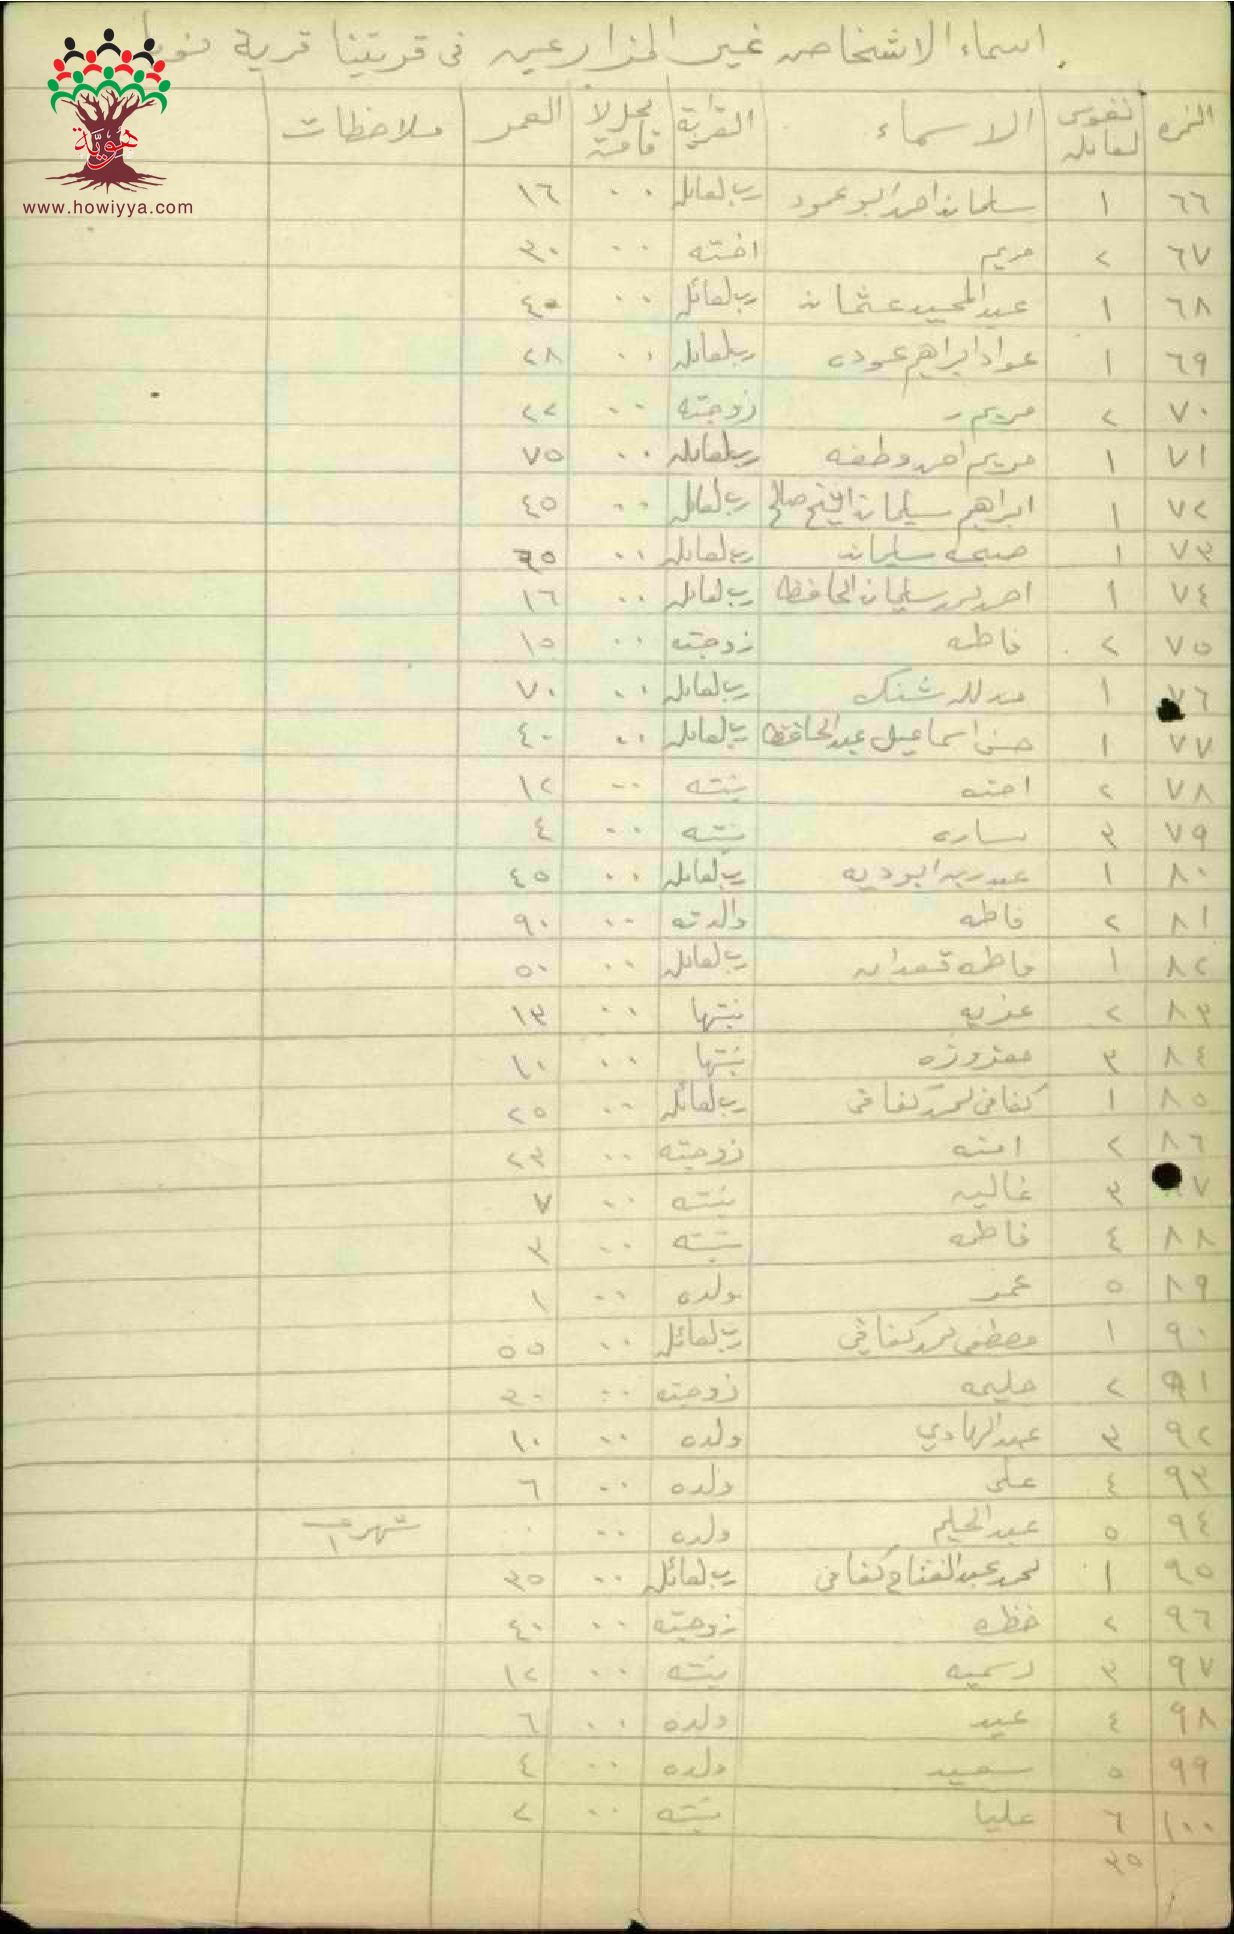 اسماء الاشخاص غير المزارعين في قريتنا قرية
هوية
www.howiyya.com
النمره نفوس العائله الاسماء القرابة محل الاقامة العمر ملاحظات
٦٦ ١ سلمان احمد ابو عمود رب العائله ٠٠ ١٦
٦٧ ٢ مريم اخته ٠٠ ٣٠
٦٨ ١ عبد المجيد عثمان رب العائله ٠٠ ٤٥
٦٩ ١ عواد ابراهيم عوده رب العائله ٠٠ ٢٨
٧٠ ٢ مريم زوجته ٠٠ ٢٢
٧١ ١ مريم احمد وطفه رب العائله ٠٠ ٧٥
٧٢ ١ ابراهيم سليمان الشيخ صالح رب العائله ٠٠ ٤٥
٧٣ ١ صبحه سليمان رب العائله ٠٠ ٦٥
٧٤ ١ احمد محمد سليمان الحافظ رب العائله ٠٠ ١٦
٧٥ ٢ فاطمه زوجته ٠٠ ١٥
٧٦ ١ شنك رب العائله ٠٠ ٧٠
٧٧ ١ حسن اسماعيل عبد الحافظ رب العائله ٠٠ ٤٠
٧٨ ٢ امنه بنته ٠٠ ١٢
٧٩ ٣ ساره بنته ٠٠ ٤
٨٠ ١ عبد ربه ابو ديه رب العائله ٠٠ ٤٥
٨١ ٢ فاطمه والدته ٠٠ ٩٠
٨٢ ١ فاطمه رب العائله ٠٠ ٥٠
٨٣ ٢ عزيه بنتها ٠٠ ١٣
٨٤ ٣ معزوزه بنتها ٠٠ ١٠
٨٥ ١ كفافي محمد كفافي رب العائله ٠٠ ٢٥
٨٦ ٢ امنه زوجته ٠٠ ٢٣
٨٧ ٣ غاليه بنته ٠٠ ٧
٨٨ ٤ فاطمه بنته ٠٠ ٣
٨٩ ٥ عمر ولده ٠٠ ١
٩٠ ١ مصطفى محمد كفافي رب العائله ٠٠ ٥٥
٩١ ٢ حليمه زوجته ٠٠ ٣٠
٩٢ ٣ عبد الهادي ولده ٠٠ ١٠
٩٣ ٤ علي ولده ٠٠ ٦
٩٤ ٥ عبد الحليم ولده ٠٠ ٠ شهر ١
٩٥ ١ محمد عبد الفتاح كفافي رب العائله ٠٠ ٣٥
٩٦ ٢ خظره زوجته ٠٠ ٤٠
٩٧ ٣ رسميه بنته ٠٠ ١٢
٩٨ ٤ عيد ولده ٠٠ ٦
٩٩ ٥ سعيد ولده ٠٠ ٤
١٠٠ ٦ عليا بنته ٠٠ ٢
٣٥